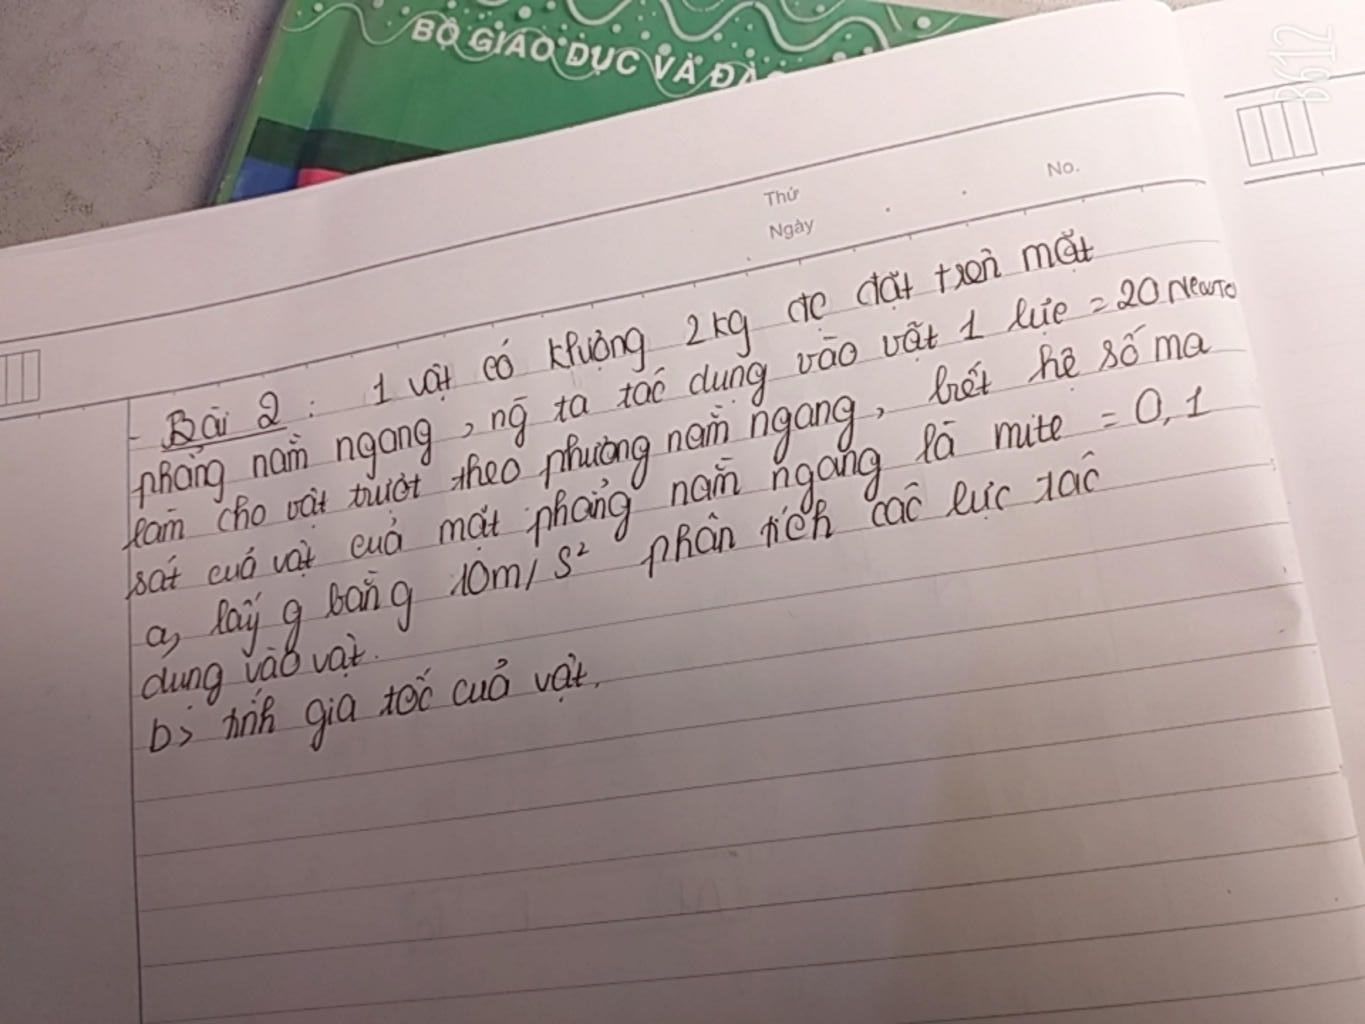 BỘ GIÁO DỤC VÀ ĐÀ
B612
Thứ
Ngày
No.
- Bài 2: 1 vật có khượng 2kg đc đặt trên mặt
phẳng nằm ngang, ng ta tác dụng vào vật 1 lực = 20 Newto
làm cho vật trượt theo phương nằm ngang, biết hệ số ma
sát cuả vật cuả mặt phẳng nằm ngang là mite = 0,1
a, lấy g bằng 10m/s² phân tích các lực tác
dụng vào vật.
b> tính gia tốc cuả vật.